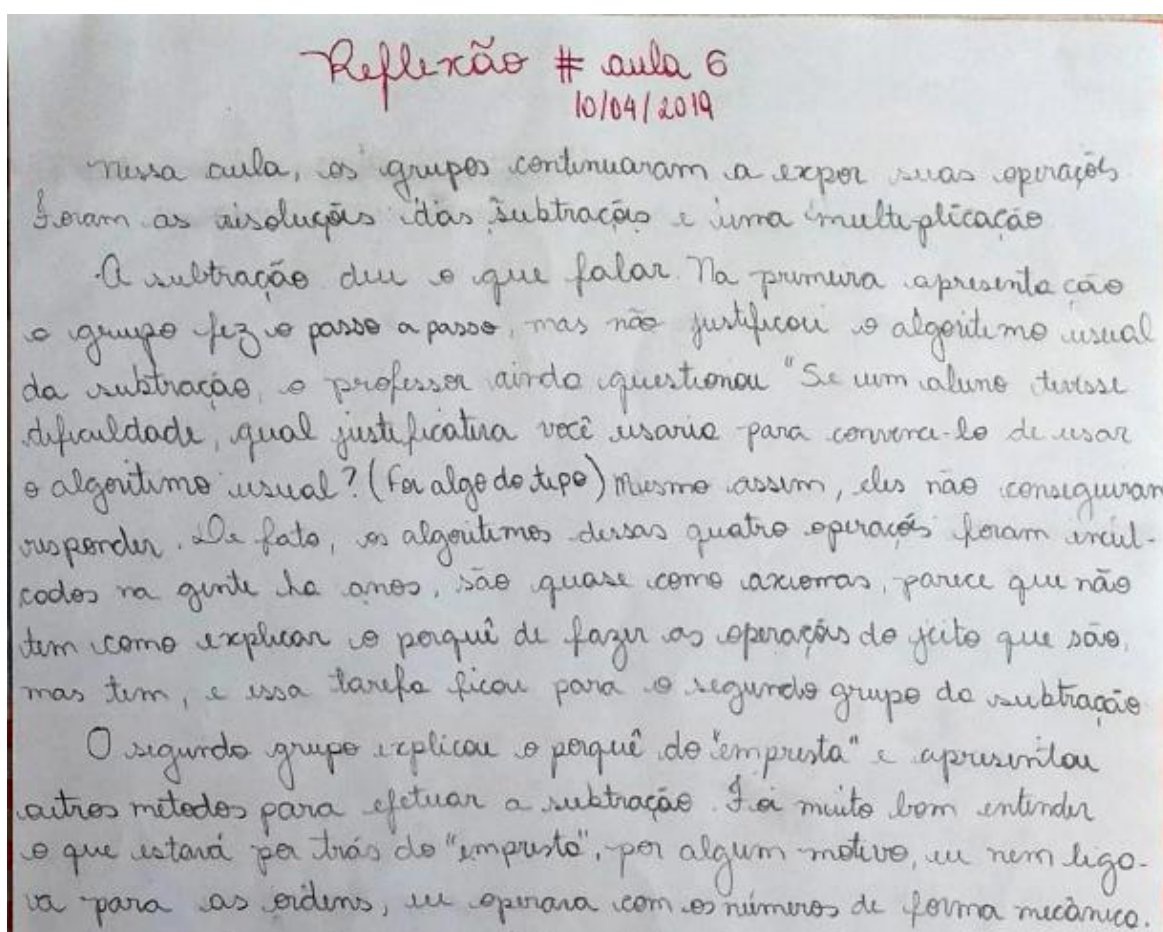 Reflexão # aula 6
10/04/2019
Nessa aula, os grupos continuaram a expor suas operações.
Foram as resoluções das subtração e uma multiplicação
A subtração deu o que falar. Na primeira apresenta ção
o grupo fez o passo a passo, mas não justificou o algoritimo usual
da subtração, o professor ainda questionou "Se um aluno tivesse
dificuldade, qual justificativa você usaria para convence-lo de usar
o algoritimo usual? (Foi algo do tipo) Mesmo assim, eles não conseguiram
responder. De fato, os algoritimos dessas quatro operações foram incul-
cados na gente ha anos, são quase como axiomas, parece que não
tem como explicar o porquê de fazer as operações do jeito que são,
mas tem, e essa tarefa ficou para o segundo grupo da subtração
O segundo grupo explicou o porquê do "empresta" e apresentou
outros métodos para efetuar a subtração. Foi muito bom entender
o que estava por trás do "empresta", por algum motivo, eu nem liga-
va para as ordens, eu operava com os números de forma mecânica.